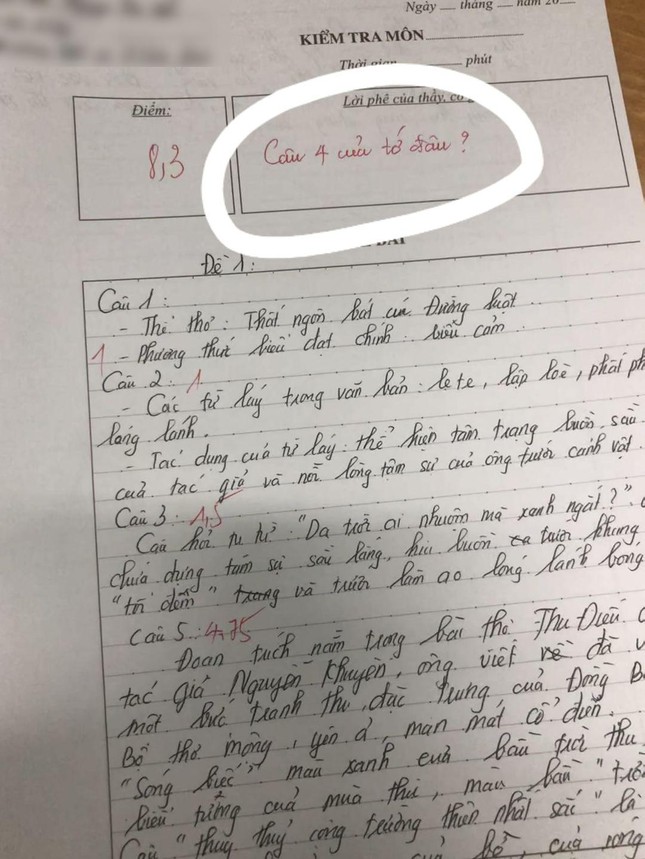 Ngày __ tháng __ năm 20__
KIỂM TRA MÔN
Thời gian phút
Điểm:
Lời phê của thầy, cô
8,3
Câu 4 của tớ đâu?
BÀI
Đề 1:
Câu 1:
- Thể thơ: Thất ngôn bát cú Đường luật
1 - Phương thức biểu đạt chính: biểu cảm
Câu 2: 1
- Các từ láy trong văn bản: le te, lập loè, phất ph
lóng lánh.
- Tác dụng của từ láy: thể hiện tâm trạng buồn sầu
của tác giả và nỗi lòng tâm sự của ông trước cảnh vật
Câu 3: 1,5
Câu hỏi tu từ "Da trời ai nhuộm mà xanh ngắt?"
chứa đựng tâm sự sâu lắng, hiu buồn trước khung
"tối đêm" và trước làn ao lóng lánh bóng
Câu 5: 4,75
Đoạn trích nằm trong bài thơ Thu Điếu
tác giả Nguyễn Khuyến, ông viết về đã v
một bức tranh thu đặc trưng của Đồng B
Bộ thơ mộng, yên ả, man mát cổ điển.
"Sóng biếc" màu xanh của bầu trời thu
biểu tượng của mùa thu, màu bầu "trời
Câu "thuỷ công trường thiên nhất sắc" là
của